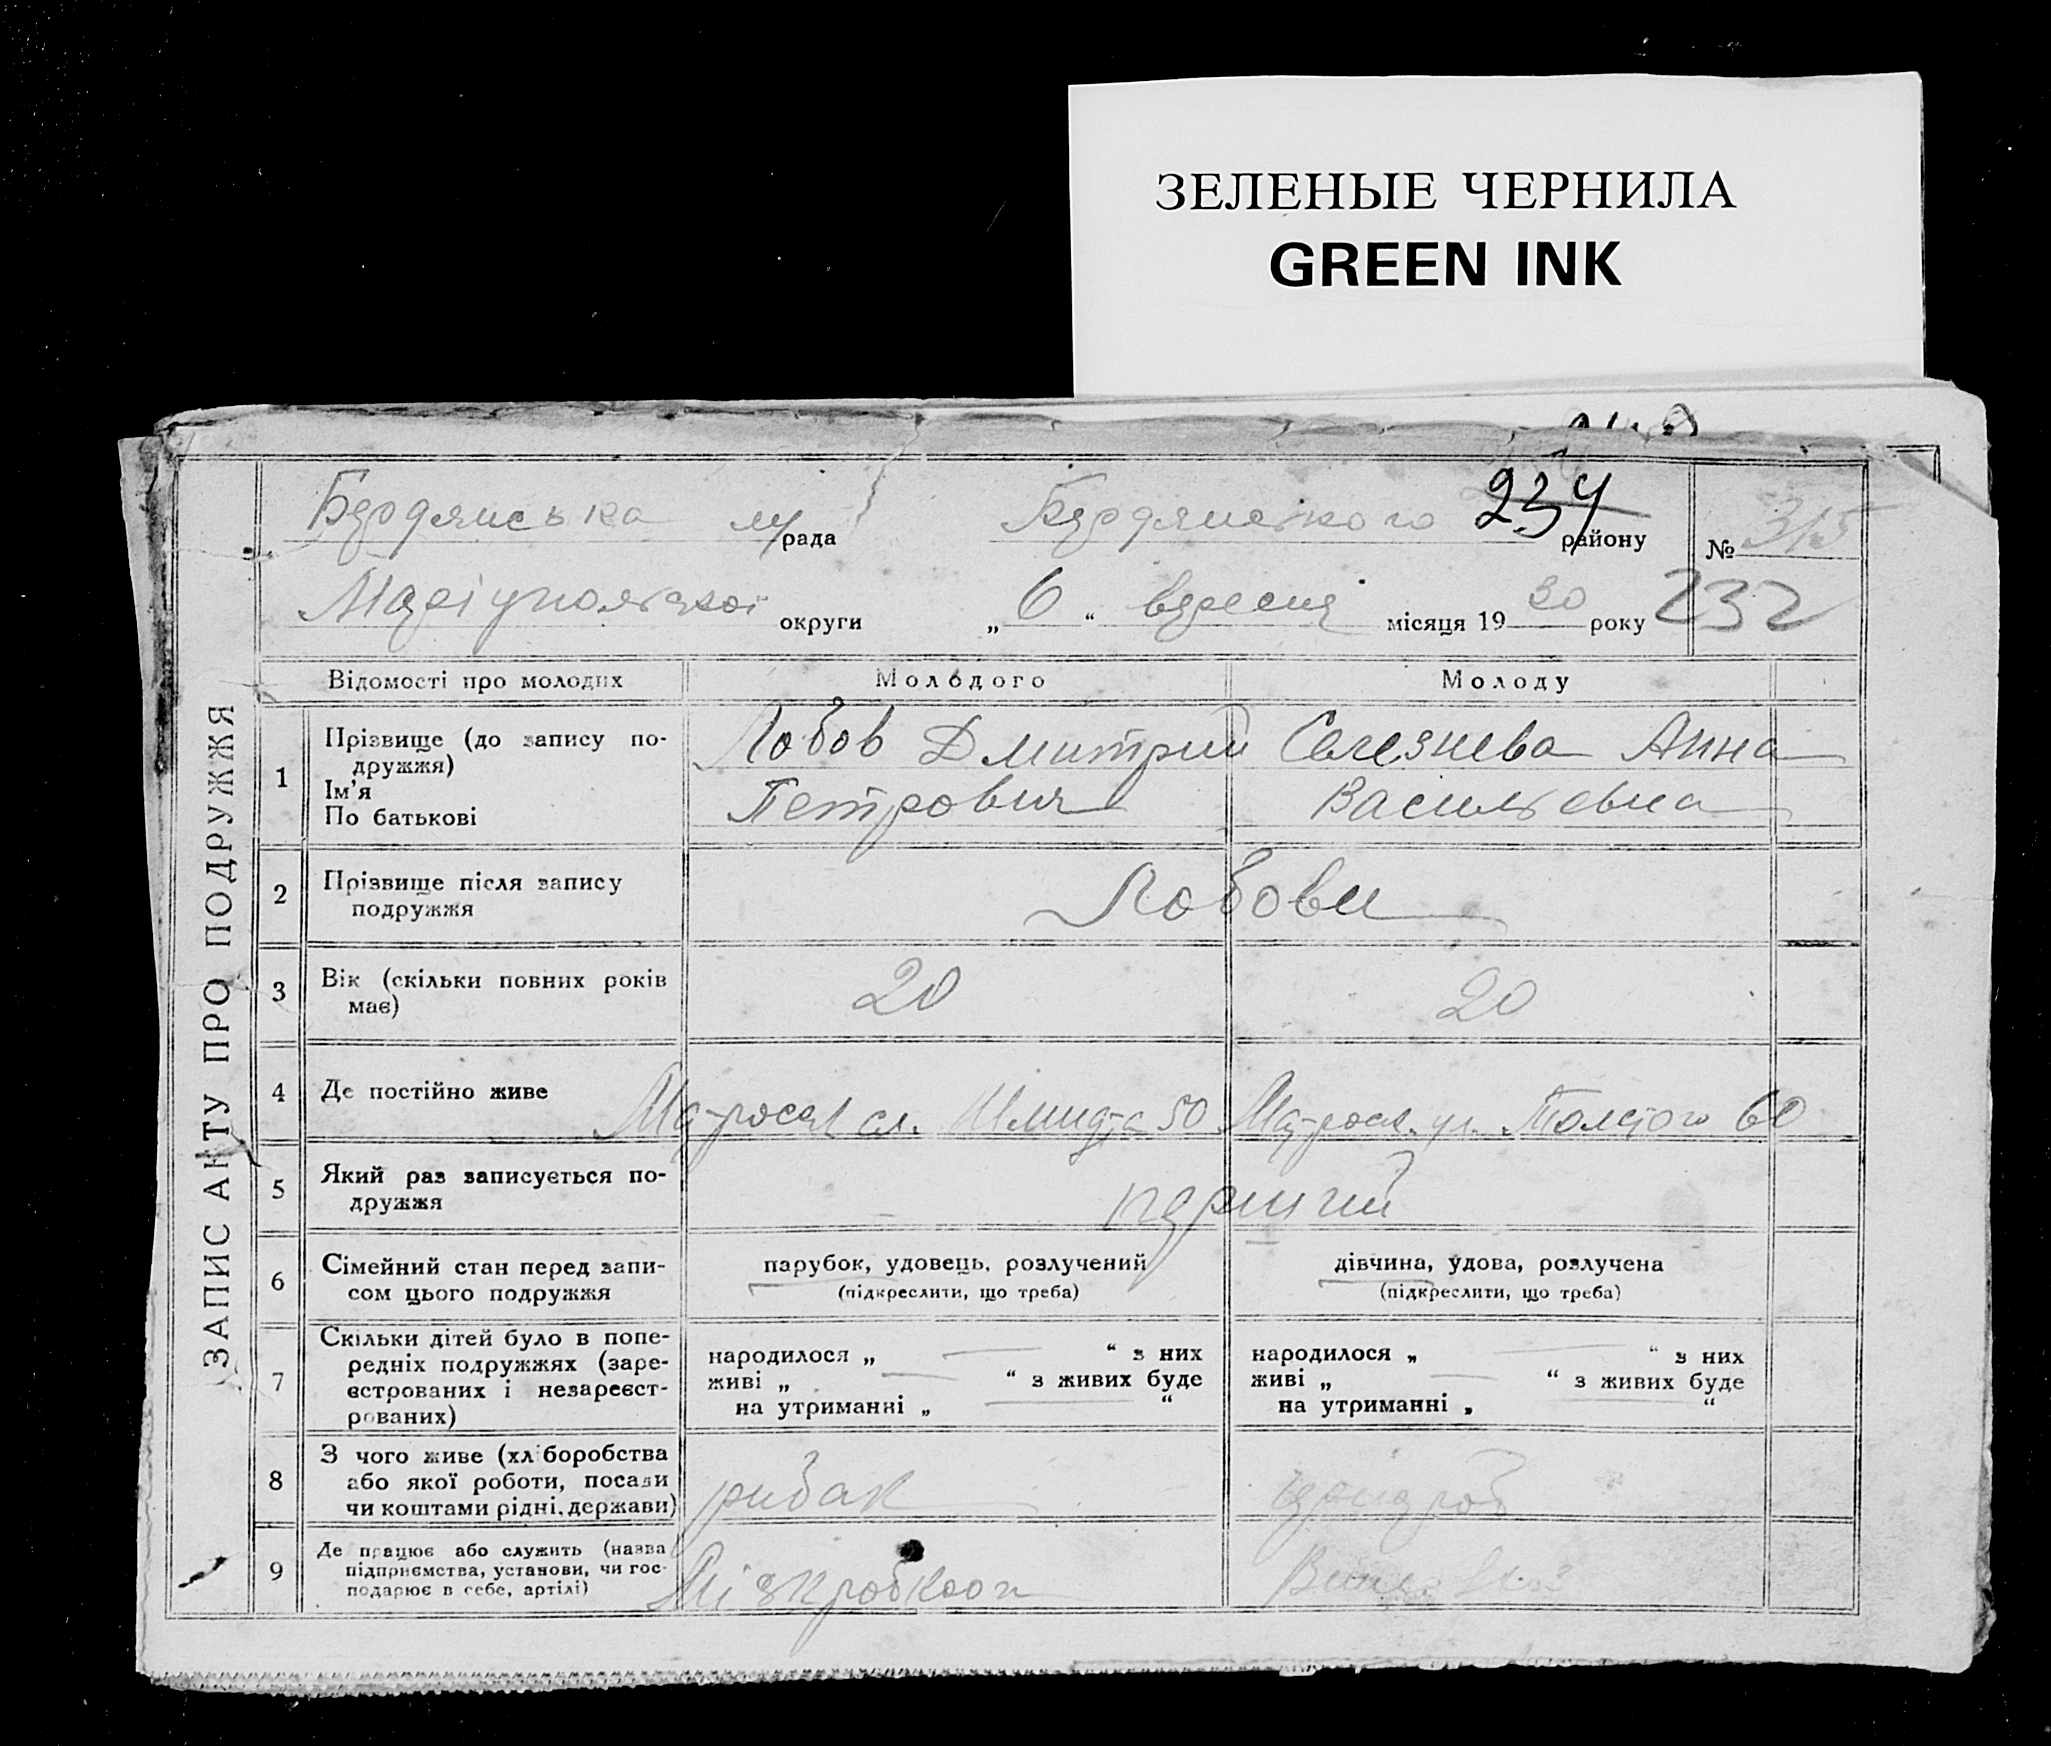 ЗЕЛЕНЫЕ ЧЕРНИЛА
GREEN INK
Бердянська м/рада Бердянського району 234 № 315
Маріупольської округи „ 6 “ вересня місяця 19 30 року 232
ЗАПИС АКТУ ПРО ПОДРУЖЖЯ
Відомості про молодих Молодого Молоду
1 Прізвище (до запису по-
дружжя)
Ім’я
По батькові
Лобов Дмитрий
Петрович
Селезнева Анна
Васильевна
2 Прізвище після запису
подружжя
Лобови
3 Вік (скільки повних років
має)
20 20
4 Де постійно живе
Матросл сл. Шмидта 50 Матросл. ул. Толстого 60
5 Який раз записується по-
дружжя
перший
6 Сімейний стан перед запи-
сом цього подружжя
парубок, удовець, розлучений
(підкреслити, що треба)
дівчина, удова, розлучена
(підкреслити, що треба)
7 Скільки дітей було в попе-
редніх подружжях (заре-
єстрованих і незареєст-
рованих)
народилося „ — “ з них
живі „ — “ з живих буде
на утриманні „ — “
народилося „ — “ з них
живі „ — “ з живих буде
на утриманні „ — “
8 З чого живе (хліборобства
або якої роботи, посади
чи коштами рідні, держави)
рибак
9 Де працює або служить (назва
підприємства, установи, чи гос-
подарює в себе, артілі)
Міжкробкооп